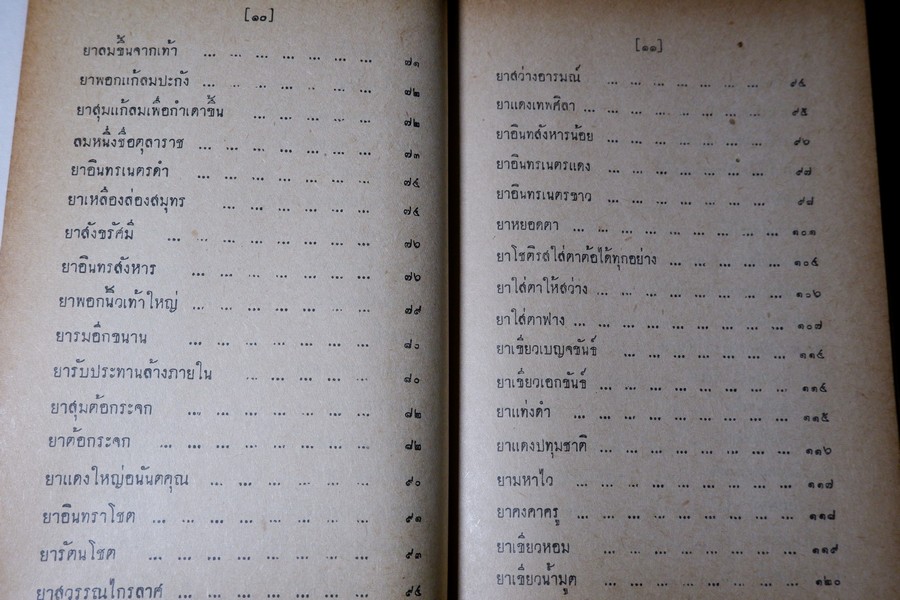 [๑๐]
ยาลมขึ้นจากเท้า ... ... ... ... ... ... ... ๗๑
ยาพอกแก้ลมปะกัง ... ... ... ... ... ... ... ๗๒
ยาสุมแก้ลมเพื่อกำเดาขึ้น ... ... ... ... ... ๗๒
ลมหนึ่งชื่อตุลาราช ... ... ... ... ... ... ... ๗๓
ยาอินทรเนตรดำ ... ... ... ... ... ... ... ๗๔
ยาเหลืองล่องสมุทร ... ... ... ... ... ... ๗๕
ยาสังขรัศมี ... ... ... ... ... ... ... ๗๖
ยาอินทรสังหาร ... ... ... ... ... ... ๗๖
ยาพอกนิ้วเท้าใหญ่ ... ... ... ... ... ... ๗๙
ยารมอีกขนาน ... ... ... ... ... ... ๘๐
ยารับประทานล้างภายใน ... ... ... ... ... ๘๐
ยาสุมต้อกระจก ... ... ... ... ... ... ๘๒
ยาต้อกระจก ... ... ... ... ... ... ... ๘๒
ยาแดงใหญ่อนันตคุณ ... ... ... ... ... ... ๙๐
ยาอินทราโชต ... ... ... ... ... ... ... ๙๑
ยารัตนโชต ... ... ... ... ... ... ... ๙๓
ยาสุวรรณไกรลาศ ... ... ... ... ... ... ๙๔
[๑๑]
ยาสว่างอารมณ์ ... ... ... ... ... ... ๙๔
ยาแดงเทพศิลา ... ... ... ... ... ... ... ๙๕
ยาอินทสังหารน้อย ... ... ... ... ... ... ๙๖
ยาอินทรเนตรแดง ... ... ... ... ... ... ๙๘
ยาอินทรเนตรขาว ... ... ... ... ... ... ๙๘
ยาหยอดตา ... ... ... ... ... ... ... ... ๑๐๑
ยาโชติรสใส่ตาต้อได้ทุกอย่าง ... ... ... ... ... ๑๐๔
ยาใส่ตาให้สว่าง ... ... ... ... ... ... ... ... ๑๐๖
ยาใส่ตาฟาง ... ... ... ... ... ... ... ... ... ๑๐๗
ยาเขียวเบญจขันธ์ ... ... ... ... ... ... ... ๑๑๔
ยาเขียวเอกขันธ์ ... ... ... ... ... ... ... ... ๑๑๔
ยาแท่งดำ ... ... ... ... ... ... ... ... ... ๑๑๕
ยาแดงปทุมชาติ ... ... ... ... ... ... ... ... ๑๑๖
ยามหาไว ... ... ... ... ... ... ... ... ... ๑๑๗
ยาคงคาครู ... ... ... ... ... ... ... ... ... ๑๑๘
ยาเขียวหอม ... ... ... ... ... ... ... ... ๑๑๙
ยาเขียวน้ำมูต ... ... ... ... ... ... ... ... ๑๒๐